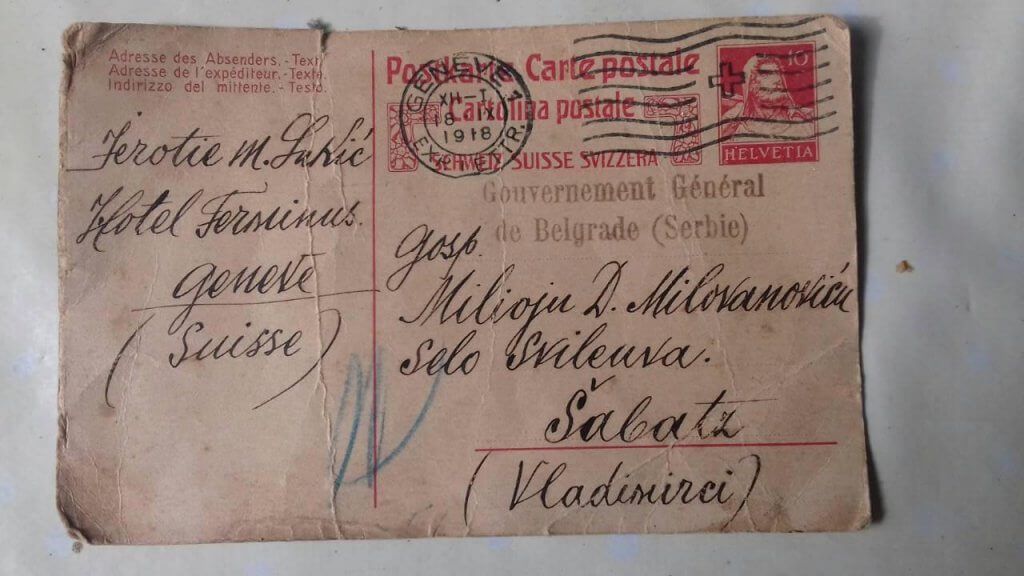 Adresse des Absenders. - Text.
Adresse de l'expéditeur. - Texte.
Indirizzo del mittente. - Testo.
Jerotie M. Lukić
Hotel Terminus.
Genève
(Suisse)
Postkarte Carte postale
Cartolina postale
SCHWEIZ SUISSE SVIZZERA
GENÈVE
XII-1
18 IX
1918
10
HELVETIA
Gouvernement Général
de Belgrade (Serbie)
Gosp.
Milioju D. Milovanoviću
Selo Svileuva.
Šabatz
(Vladimirci)